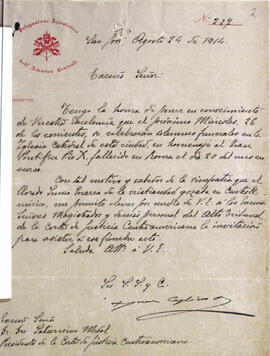 2
Nº 227
Delegazione Apostolica
dell' America Centrale
San José, Agosto 24 de 1914.
Excmo Señor:
Tengo la honra de poner en conocimiento
de Vuestra Excelencia que el próximo Miércoles, 26
de los corrientes, se celebrarán solemnes funerales en la
Iglesia Catedral de esta ciudad, en homenaje al Gran
Pontífice Pío X, fallecido en Roma el día 20 del mes en
curso.
Con tal motivo y sabedor de la simpatía que el
llorado Sumo Jerarca de la cristiandad gozaba en Centro
América, me permito elevar por medio de V. E. á los
Señores Magistrados y demás personal del Alto Tribunal
de la Corte de Justicia Centroamericana la invitación
para asistir á ese fúnebre acto.
Saluda Attº á V. E.
Su S. S. y C.
Excmo Señor
Dr. Dn. Saturnino Medal
Presidente de la Corte de Justicia Centroamericana.